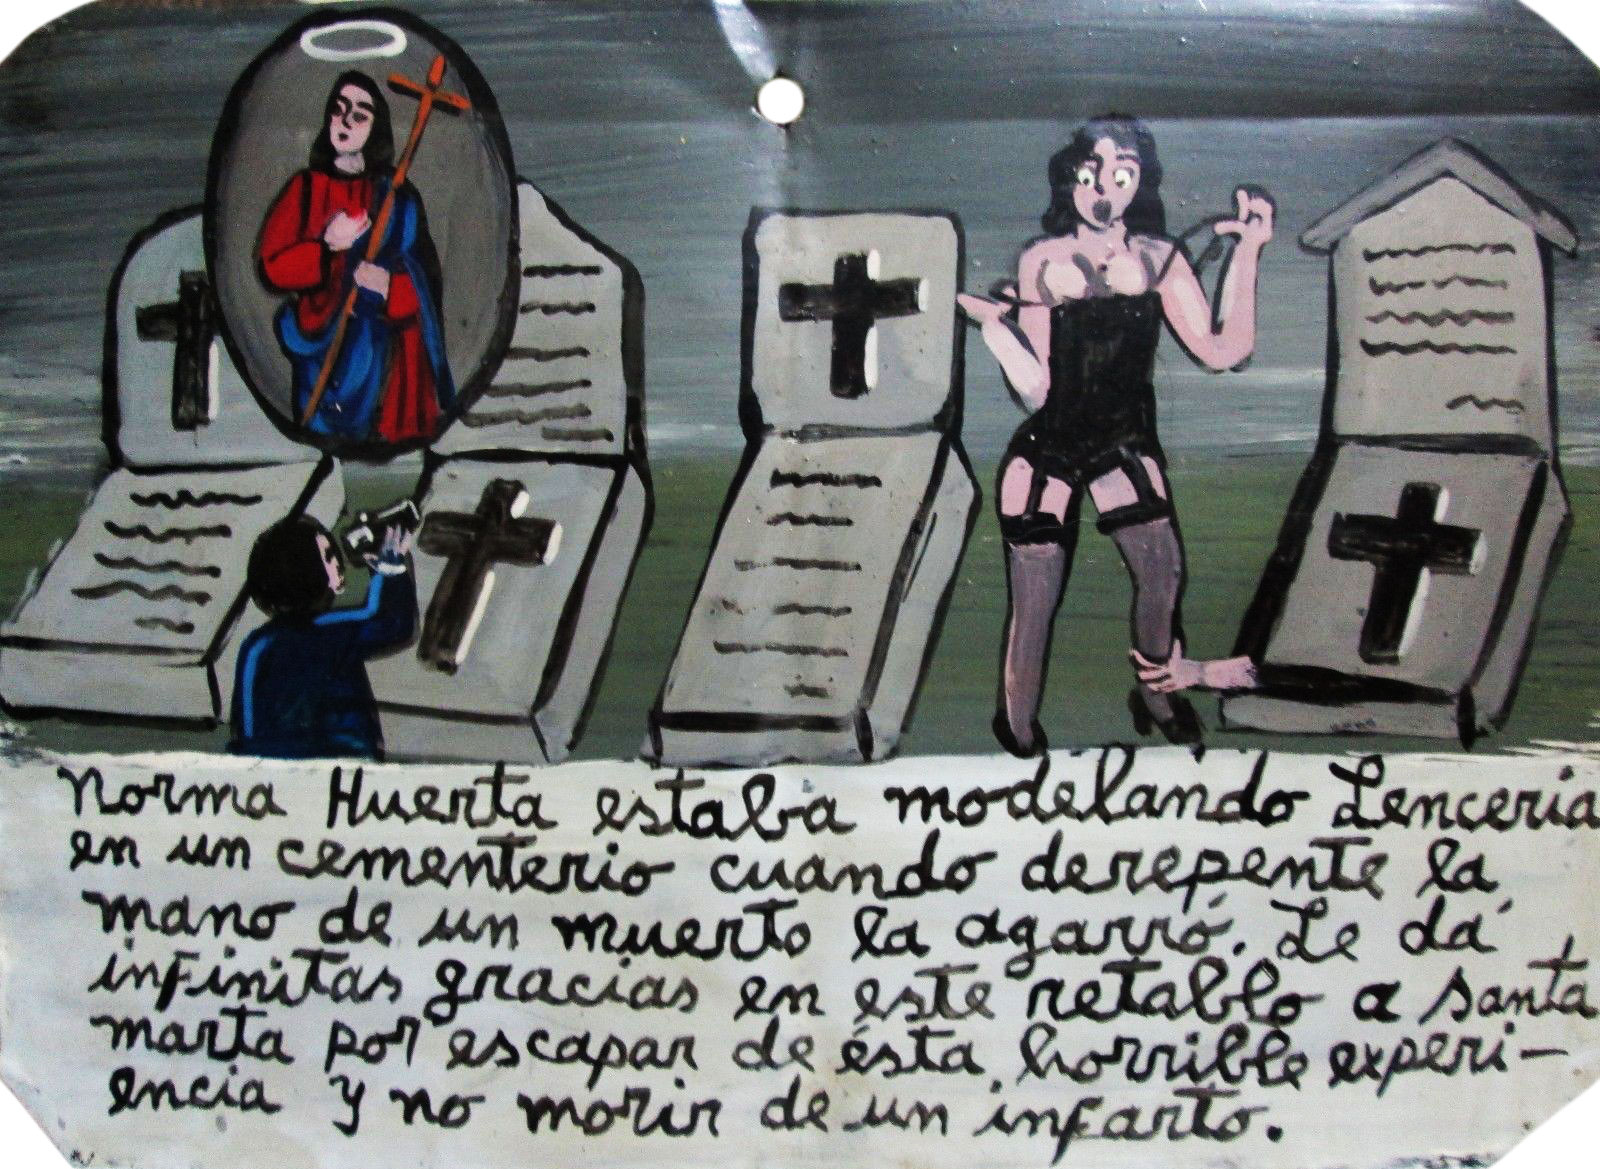 Norma Huerta estaba modelando Lenceria
en un cementerio cuando derepente la
mano de un muerto la agarró. Le dá
infinitas gracias en este retablo a santa
marta por escapar de ésta horrible experi-
encia y no morir de un infarto.